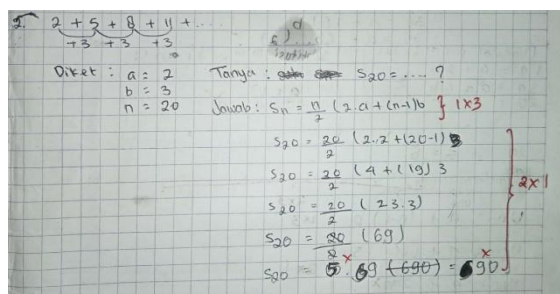 2. 2 + 5 + 8 + 11 + ....
+3 +3 +3
Diket : a = 2
b = 3
n = 20
Tanya : S20 = .... ?
Jawab : Sn = n/2 (2.a + (n-1)b } 1x3
S20 = 20/2 (2.2 + (20-1) 3
S20 = 20/2 (4 + (19) 3
S20 = 20/2 (23.3)
S20 = 20/2 (69)
S20 = 5 . 69 (690) = 690
x x
2x1